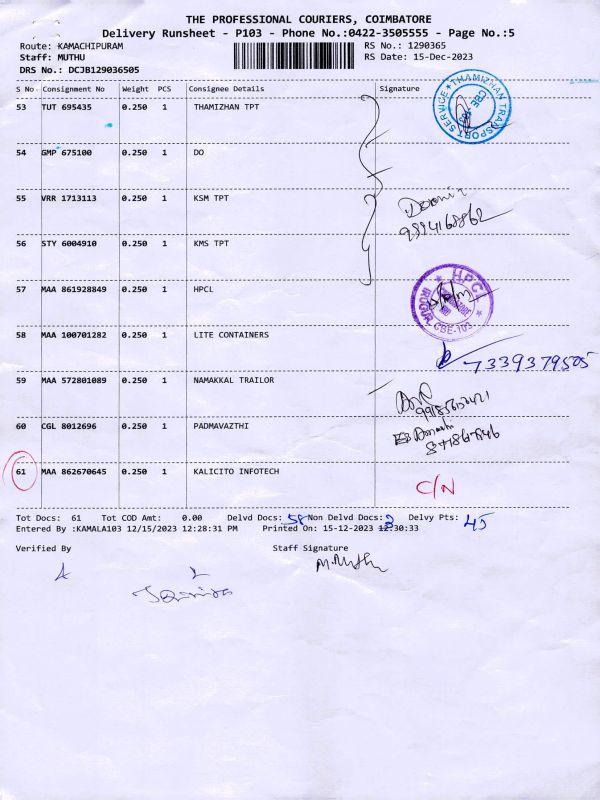 THE PROFESSIONAL COURIERS, COIMBATORE
Delivery Runsheet - P103 - Phone No.:0422-3505555 - Page No.:5
Route: KAMACHIPURAM RS No.: 1290365
Staff: MUTHU RS Date: 15-Dec-2023
DRS No.: DCJB129036505
S No Consignment No Weight PCS Consignee Details Signature
53 TUT 695435 0.250 1 THAMIZHAN TPT
THAMIZHAN TRANSPORT SERVICE CBE-103
54 GMP 675100 0.250 1 DO
55 VRR 1713113 0.250 1 KSM TPT
9894168862
56 STY 6004910 0.250 1 KMS TPT
57 MAA 861928849 0.250 1 HPCL
HPCL IRUGUR CBE-103.
58 MAA 100701282 0.250 1 LITE CONTAINERS
7339379505
59 MAA 572801089 0.250 1 NAMAKKAL TRAILOR
60 CGL 8012696 0.250 1 PADMAVAZTHI
61 MAA 862670645 0.250 1 KALICITO INFOTECH
C/N
Tot Docs: 61 Tot COD Amt: 0.00 Delvd Docs: 58 Non Delvd Docs: 3 Delvy Pts: 45
Entered By :KAMALA103 12/15/2023 12:28:31 PM Printed On: 15-12-2023 12:30:33
Verified By Staff Signature
M.Muthu